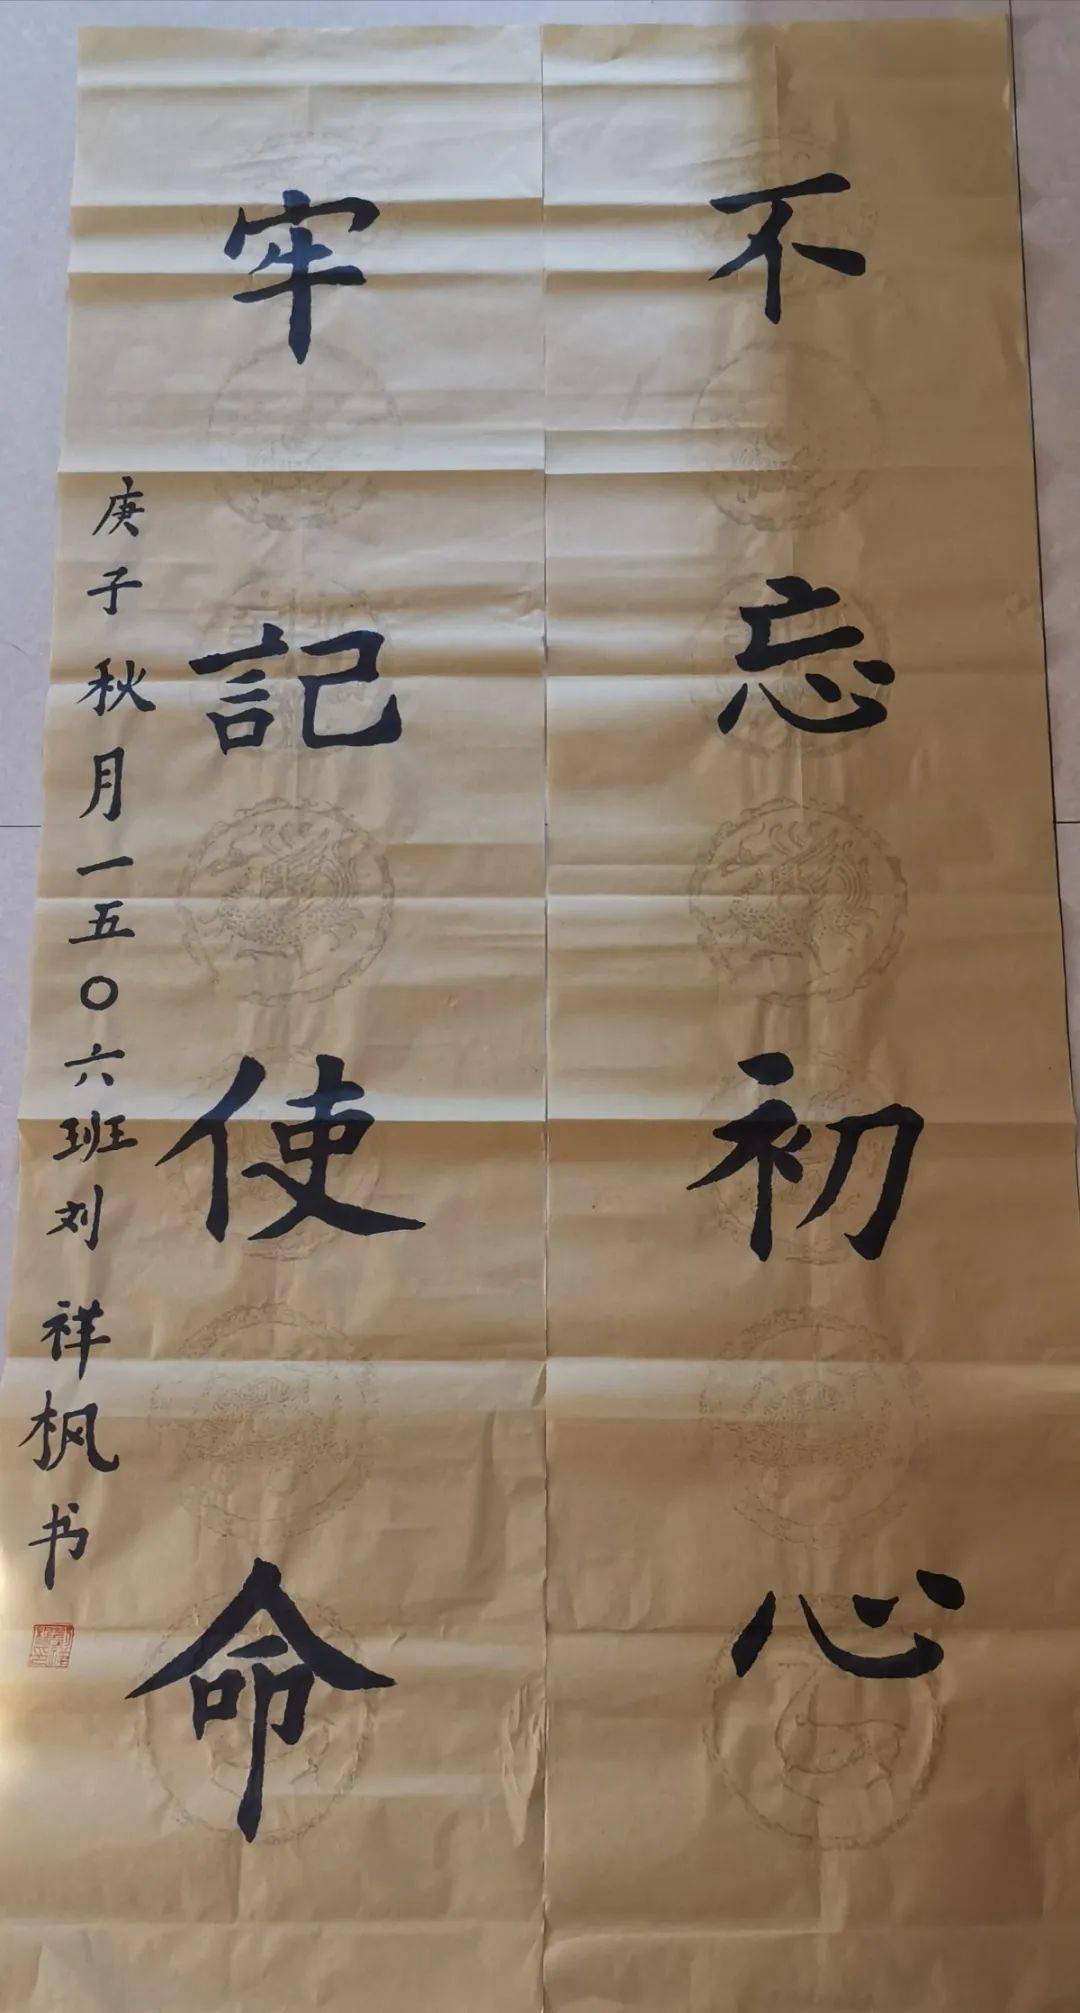 不忘初心
牢記使命
庚子秋月一五〇六班刘祥枫书